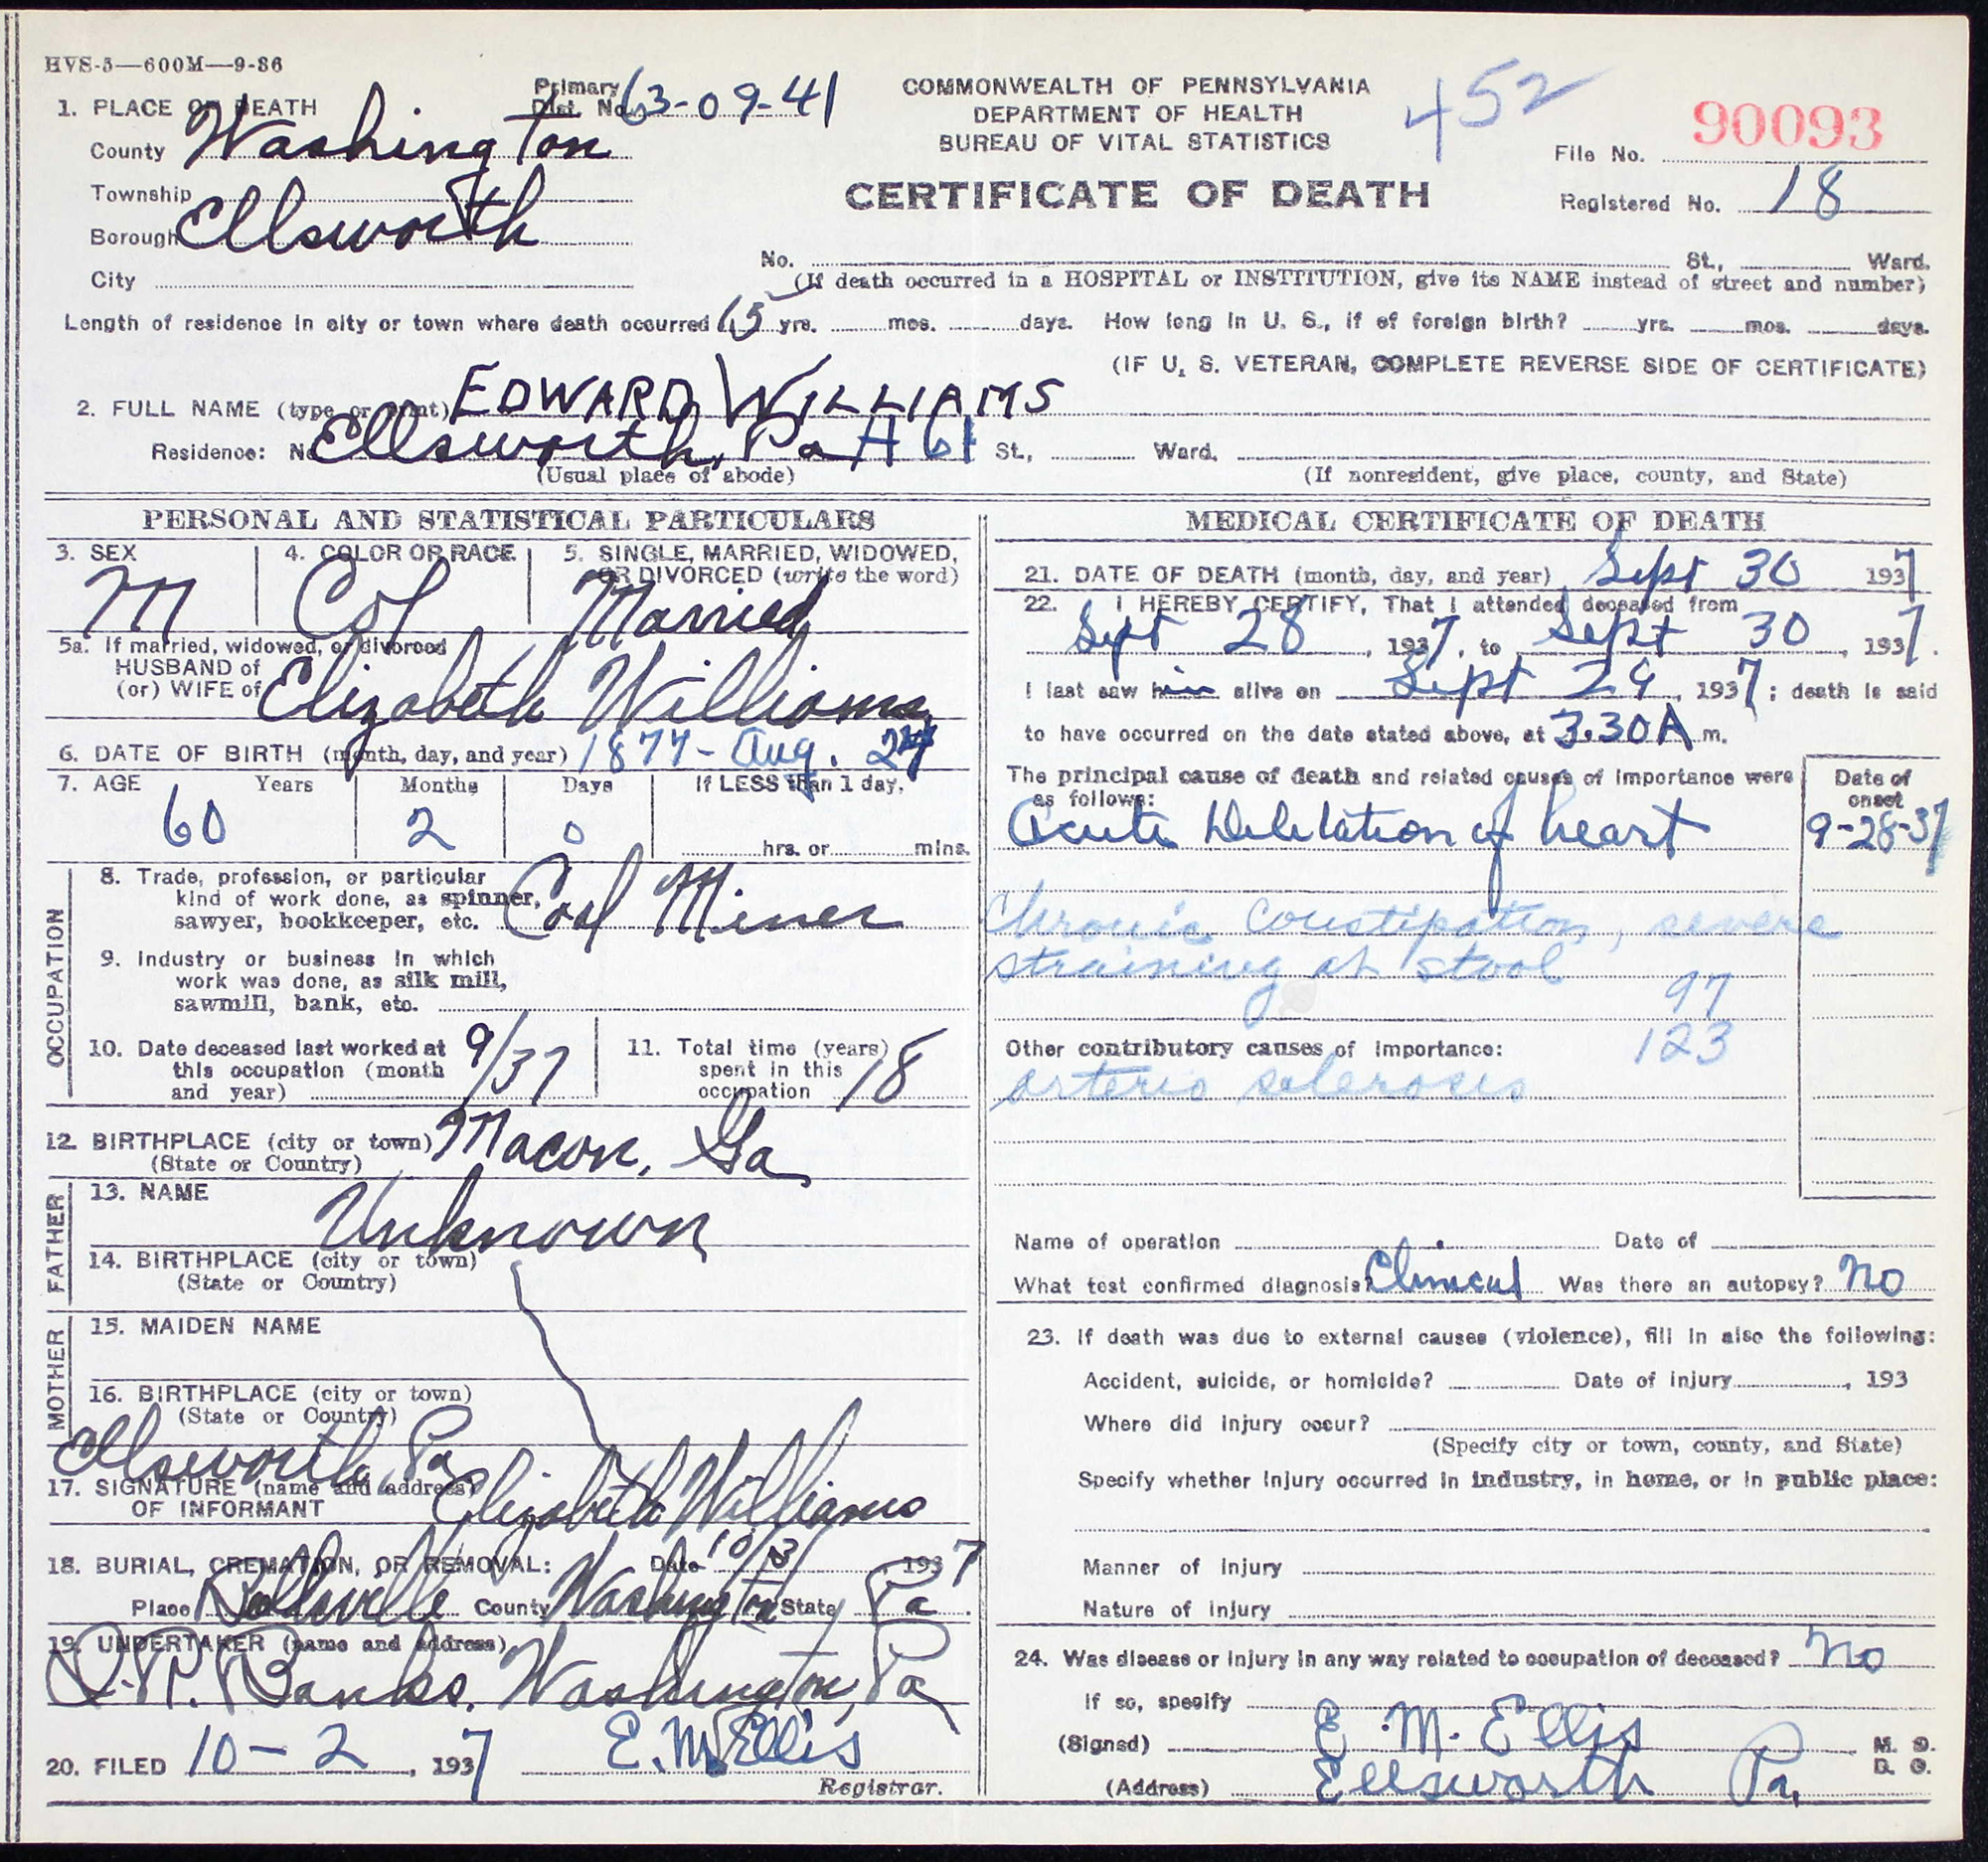 HVS-5—600M—9-36
1. PLACE OF DEATH
Primary Dist. No. 63-09-41
County Washington
Township
Borough Ellsworth
City
COMMONWEALTH OF PENNSYLVANIA
DEPARTMENT OF HEALTH
BUREAU OF VITAL STATISTICS
CERTIFICATE OF DEATH
452
90093
File No.
Registered No. 18
No. St., Ward.
(If death occurred in a HOSPITAL or INSTITUTION, give its NAME instead of street and number)
Length of residence in city or town where death occurred 15 yrs. mos. days. How long in U. S., if of foreign birth? yrs. mos. days.
(IF U. S. VETERAN, COMPLETE REVERSE SIDE OF CERTIFICATE)
2. FULL NAME (type or print) EDWARD WILLIAMS
Residence: No. Ellsworth, Pa H 61 St., Ward.
(Usual place of abode) (If nonresident, give place, county, and State)
PERSONAL AND STATISTICAL PARTICULARS
3. SEX
M
4. COLOR OR RACE
Col
5. SINGLE, MARRIED, WIDOWED,
OR DIVORCED (write the word)
Married
5a. If married, widowed, or divorced
HUSBAND of
(or) WIFE of Elizabeth Williams
6. DATE OF BIRTH (month, day, and year) 1877 - Aug.
7. AGE Years Months Days If LESS than 1 day,
60 2 0 hrs. or mins.
OCCUPATION
8. Trade, profession, or particular
kind of work done, as spinner,
sawyer, bookkeeper, etc. Coal Miner
9. Industry or business in which
work was done, as silk mill,
sawmill, bank, etc.
10. Date deceased last worked at
this occupation (month
and year) 9/37
11. Total time (years)
spent in this
occupation 18
12. BIRTHPLACE (city or town) Macon, Ga
(State or Country)
FATHER
13. NAME
Unknown
14. BIRTHPLACE (city or town)
(State or Country)
MOTHER
15. MAIDEN NAME
16. BIRTHPLACE (city or town)
(State or Country)
Ellsworth, Pa
17. SIGNATURE (name and address)
OF INFORMANT Elizabeth Williams
18. BURIAL, CREMATION, OR REMOVAL: Date 10/3 1937
Place County Washington State Pa.
19. UNDERTAKER (name and address)
Banks, Washington, Pa
20. FILED 10-2, 1937 E. M. Ellis
Registrar.
MEDICAL CERTIFICATE OF DEATH
21. DATE OF DEATH (month, day, and year) Sept 30 1937
22. I HEREBY CERTIFY, That I attended deceased from
Sept 28, 1937, to Sept 30, 1937.
I last saw him alive on Sept 29, 1937; death is said
to have occurred on the date stated above, at 3.30 A m.
The principal cause of death and related causes of importance were
as follows:
Date of
onset
Acute Dilelation of heart 9-28-37
Chronic Constipation, severe
straining at stool
97
123
Other contributory causes of importance:
arterio sclerosis
Name of operation Date of
What test confirmed diagnosis? Clinical Was there an autopsy? No
23. If death was due to external causes (violence), fill in also the following:
Accident, suicide, or homicide? Date of injury , 193
Where did injury occur?
(Specify city or town, county, and State)
Specify whether injury occurred in industry, in home, or in public place:
Manner of injury
Nature of injury
24. Was disease or injury in any way related to occupation of deceased? No
If so, specify
(Signed) E. M. Ellis M. D.
D. O.
(Address) Ellsworth Pa.